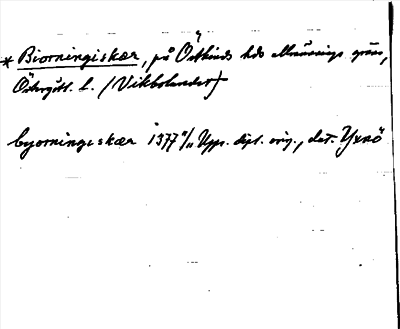 * Biorningiskær, på Östkinds hds allmänings gräns,
Östergötl. l. (Vikbolandet)
byorningeskær 1377 Upps. dipl. orig., dat. Yxnö